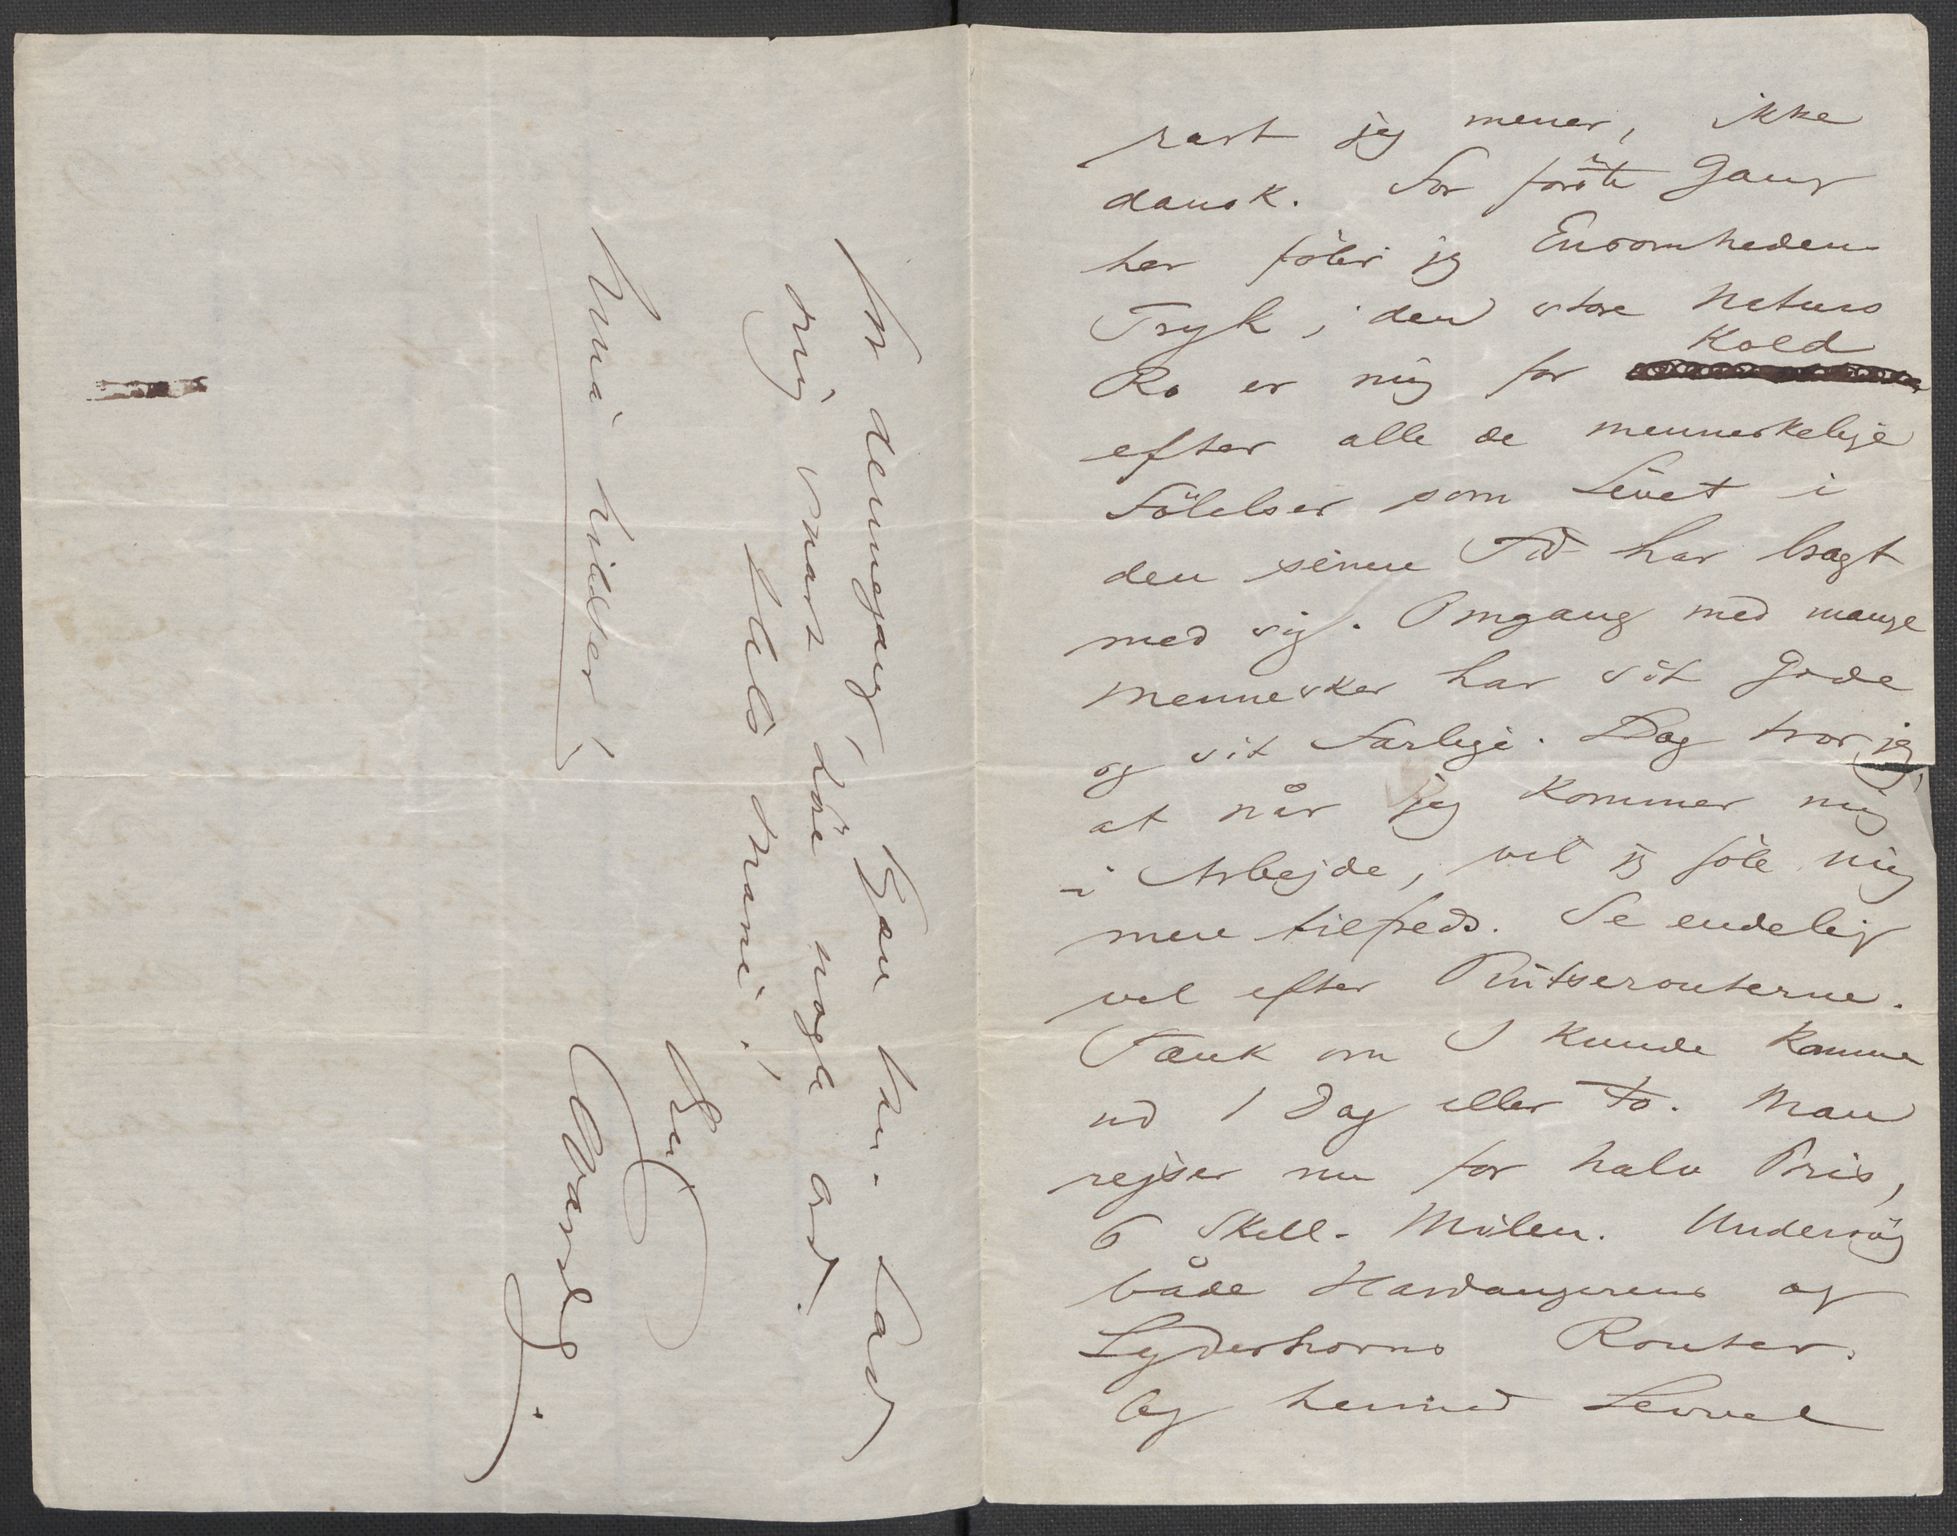 rart jeg mener, ikke
dansk. For første Gang
her föler jeg Ensomhedens
Tryk, den store Naturs
Kold
Ro er mig for
efter alle de menneskelige
Fölelser som Livet i
den senere Tid har bragt
med sig. Omgang med mange
Mennesker har sit Gode
og sit Farlige. Dog tror jeg,
at når jeg kommer mig
i Arbejde, vil jeg föle mig
mere tilfreds. Se endelig
vel efter Pintserouterne.
Tænk om I kunde komme
ud 1 Dag eller to. Man
rejser nu for halv Pris,
6 Skill. Milen. Undersög
både Hardangerens og
Lyderhorns Router.
Og hermed Levvel
for dennegang, kjære ven. Lad
mig snart höre nogle ord.
Hils Marie!
Din
Edvard.
Nina hilser!